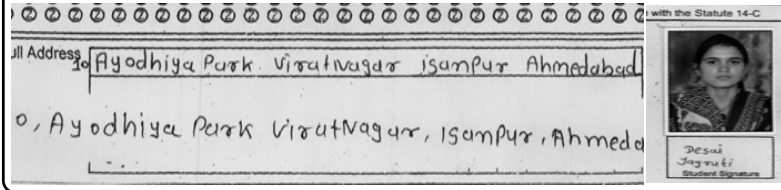 with the Statute 14-C
ull Address
10 Ayodhiya Park. Viratnagar isanpur Ahmedabad
0, Ayodhiya Park ViratNagar, Isanpur, Ahmeda
Desai
Jagruti
Student Signature